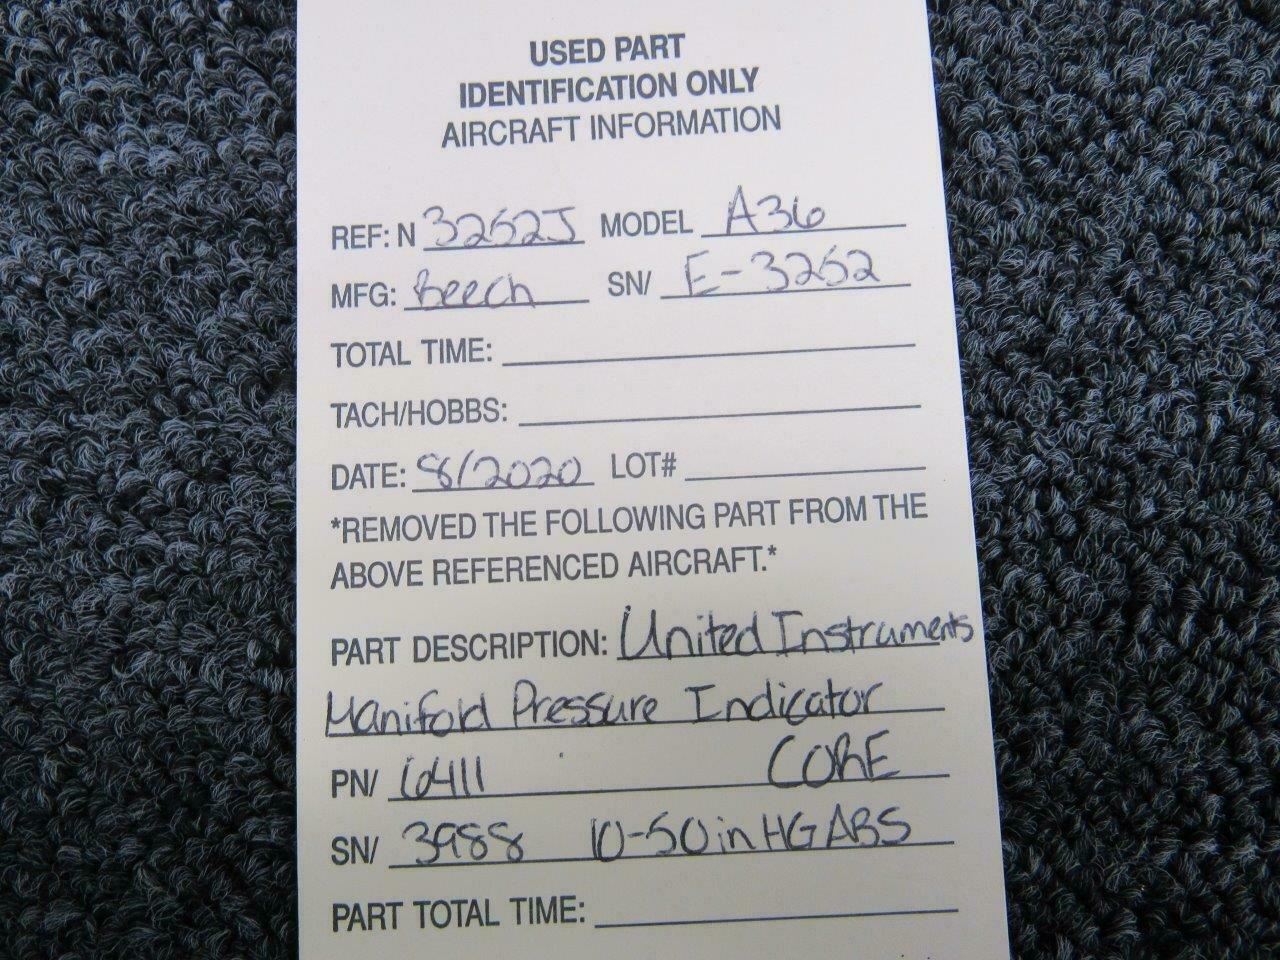 USED PART
IDENTIFICATION ONLY
AIRCRAFT INFORMATION
REF: N 3252J MODEL A36
MFG: Beech SN/ E-3252
TOTAL TIME:
TACH/HOBBS:
DATE: 8/2020 LOT#
*REMOVED THE FOLLOWING PART FROM THE
ABOVE REFERENCED AIRCRAFT.*
PART DESCRIPTION: United Instruments
Manifold Pressure Indicator
PN/ 6411 CORE
SN/ 3988 10-50 in HG ABS
PART TOTAL TIME: